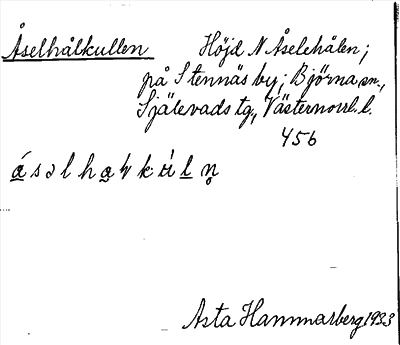 Åselhålkullen Höjd N Åselehålen;
på Stennäs by; Björna sn.,
Själevads tg., Västernorrl. l.
456
Asta Hammarberg 1933